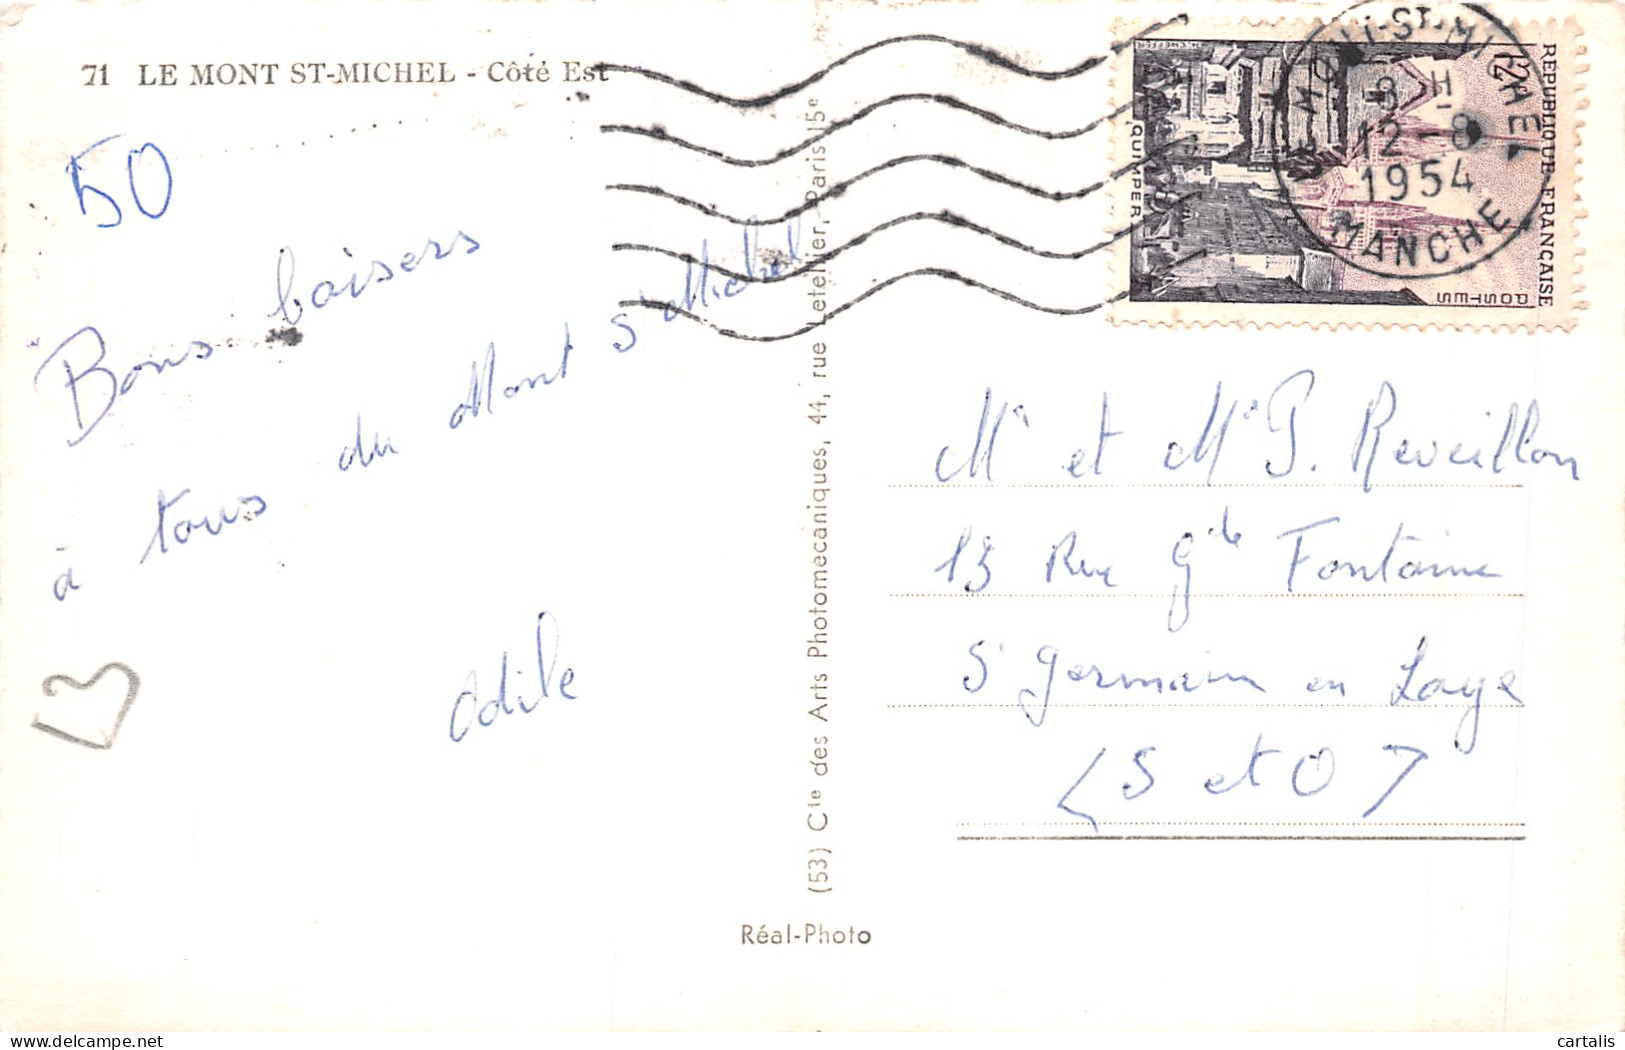 71 LE MONT ST-MICHEL - Côté Est
50
Bons baisers
à tous du Mont St Michel
Odile
(53) Cie des Arts Photomécaniques, 44, rue Letellier, Paris-15e
Réal-Photo
RÉPUBLIQUE-FRANÇAISE
POSTES
QUIMPER
12F
LE MONT-ST-MICHEL
8 H
12-8
1954
MANCHE
Mr et Me P. Reveillon
13 Rue Gde Fontaine
St Germain en Laye
(S et O)
cartalis